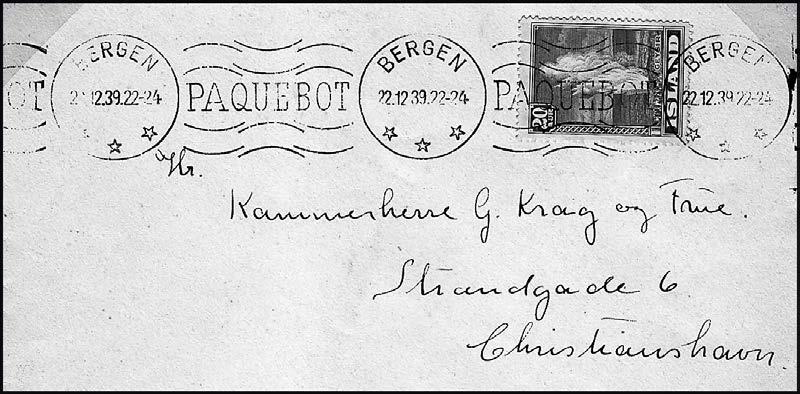 BERGEN BERGEN BERGEN
OT 2 .12.39.22-24 PAQUEBOT 22.12.39.22-24 PAQUEBOT 22.12.39.22-24
ISLAND
20
Hr.
Kammerherre G. Krag og Frue.
Strandgade 6
Christianshavn.